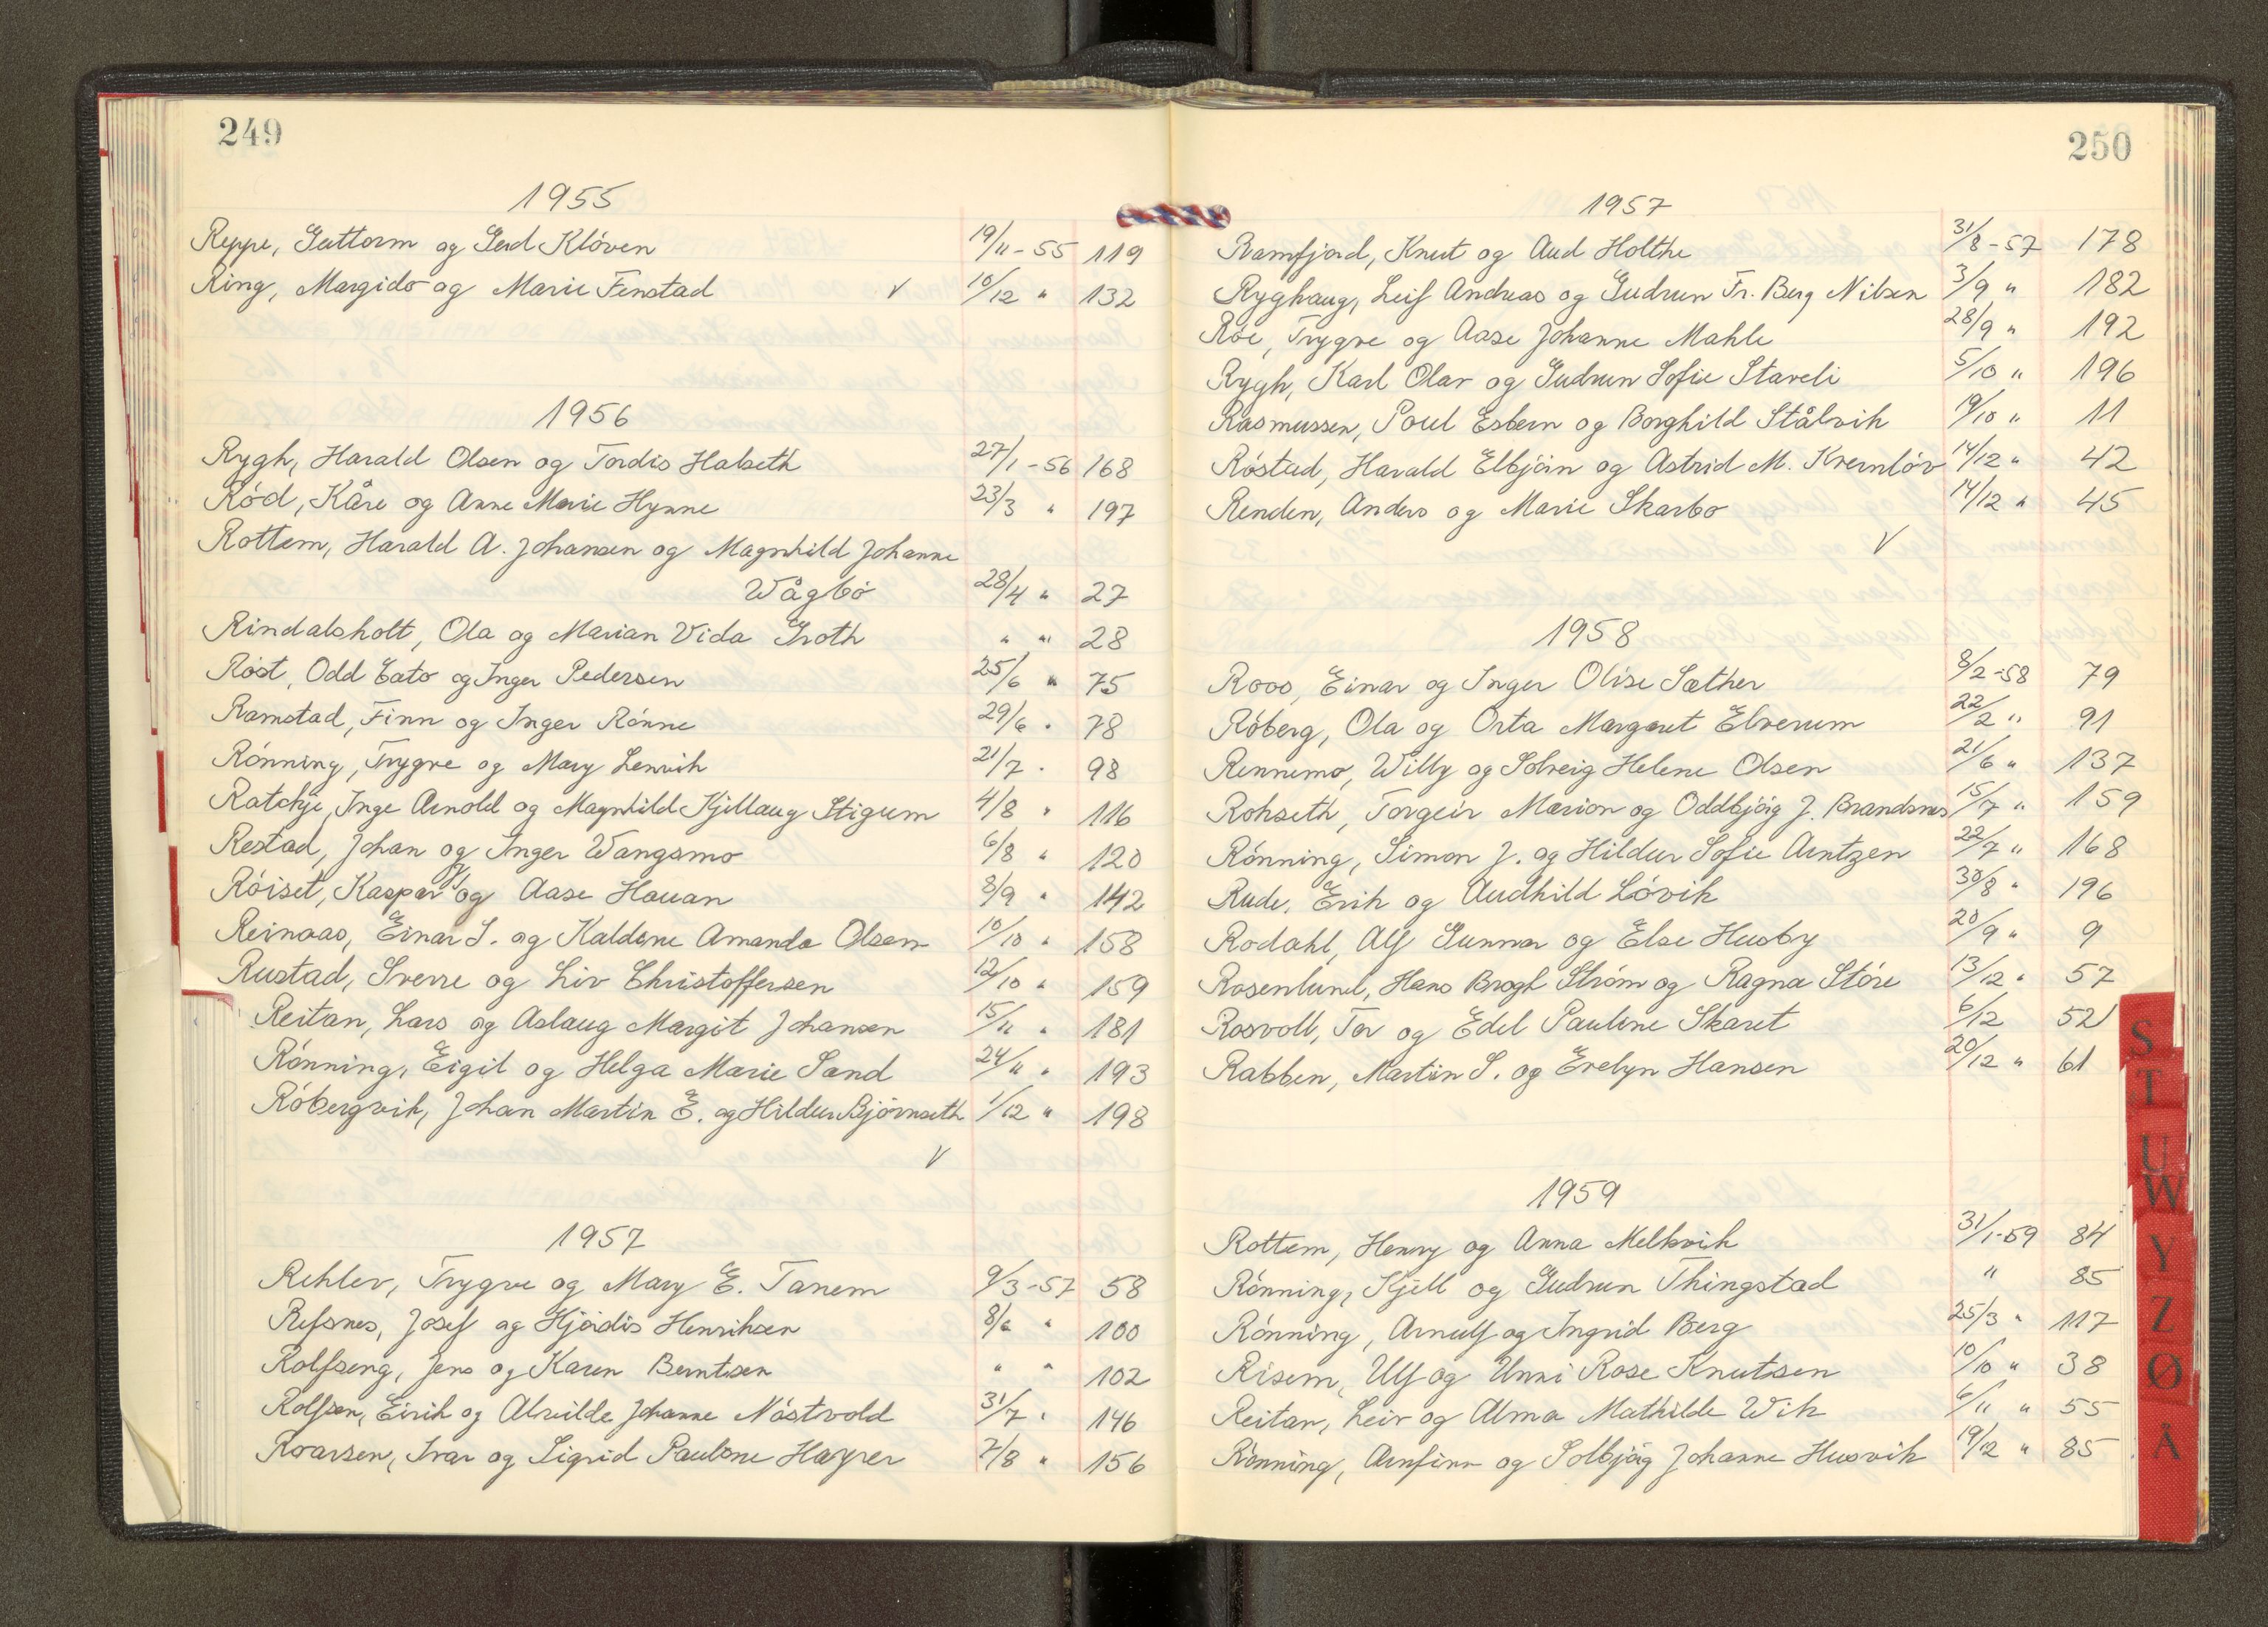 249
1955
Reppe, Guttorm og Gerd Klöven 19/11-55 119
Ring, Margido og Marie Fenstad √ 10/12 " 132
1956
Rygh, Harald Olsen og Tordis Halseth 27/1-56 168
Röd, Kåre og Anne Marie Hynne 23/3 " 197
Rottem, Harald A. Johansen og Magnhild Johanne
Wågbö 28/4 " 27
Rindalsholt, Ola og Marian Vida Groth " " 28
Röst, Odd Cato og Inger Pedersen 25/6 " 75
Ramstad, Finn og Inger Rönne 29/6 " 78
Rönning, Trygve og Mary Lenvik 21/7 " 98
Ratchje, Inge Arnold og Magnhild Kjellaug Stigum 4/8 " 116
Restad, Johan og Inger Wangsmo 6/8 " 120
Röiset, Kaspar og Aase Hauan 8/9 " 142
Reinaas, Einar S. og Amanda Olsen 10/10 " 158
Rustad, Sverre og Liv Christoffersen 12/10 " 159
Reitan, Lars og Aslaug Margit Johansen 15/11 " 181
Rönning, Eigil og Helga Marie Sand 24/11 " 193
Röbergvik, Johan Martin E. og Hildur Björnseth 1/12 " 198
√
1957
Rehlev, Trygve og Mary E. Tanem 9/3-57 58
Refsnes, Josef og Hjördis Henriksen 8/6 " 100
Rolfseng, Jens og Karen Berntsen " " 102
Rolfsen, Eirik og Alvilde Johanne Nöstvold 31/7 " 146
Roarsen, Ivar og Sigrid Pauline Hayrer 7/8 " 156
250
1957
Ramfjord, Knut og Aud Holthe 31/8-57 178
Ryghaug, Leif Andreas og Gudrun Fr. Berg Nilsen 3/9 " 182
Röe, Trygve og Aase Johanne Mahle 28/9 " 192
Rygh, Karl Olav og Gudrun Sofie Staveli 5/10 " 196
Rasmussen, Poul Esbern og Borghild Stålvik 19/10 " 11
Röstad, Harald Elbjörn og Astrid M. Kremlöv 14/12 " 42
Renden, Anders og Marie Skarbo 14/12 " 45
√
1958
Roos, Einar og Inger Olise Sæther 8/2-58 79
Röberg, Ola og Orta Margaret Elverum 22/2 " 91
Rennemo, Willy og Solveig Helene Olsen 21/6 " 137
Rohseth, Torgeir Marion og Oddbjörg J. Brandsnes 15/7 " 159
Rönning, Simon J. og Hildur Sofie Arntzen 22/7 " 168
Rude, Erik og Audhild Lövik 30/8 " 196
Rodahl, Alf Gunnar og Else Husby 20/9 " 9
Rosenlund, Hans Brogh Ström og Ragna Störe 13/12 " 57
Rosvoll, Tor og Edel Pauline Skaret 6/12 52
Rabben, Martin S. og Evelyn Hansen 20/12 " 61
1959
Rottem, Henry og Anna Melkvik 31/1-59 84
Rönning, Kjell og Gudrun Thingstad " 85
Rönning, Arnulf og Ingrid Berg 25/3 " 117
Risem, Ulf og Unni Rose Knutsen 10/10 " 38
Reitan, Leiv og Alma Mathilde Wik 6/11 " 55
Rönning, Arnfinn og Solbjög Johanne Husvik 19/12 " 85
S
T
U
W
Y
Z
Ø
Å